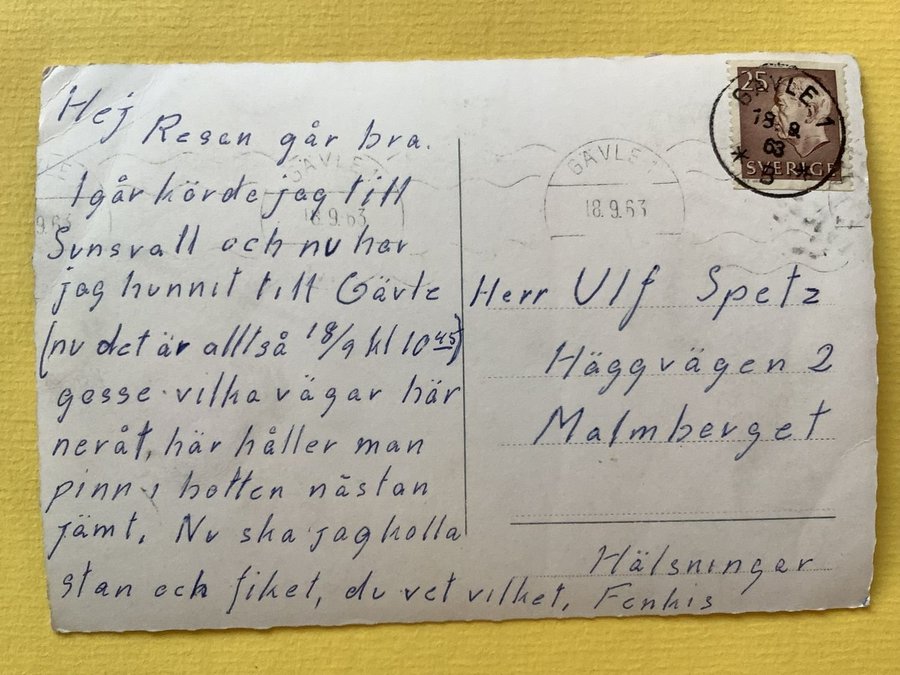 Hej
Resan går bra.
Igår körde jag till
Sunsvall och nu har
jag hunnit till Gävle
(nu det är alltså 18/9 kl 10 45)
gosse vilka vägar här
neråt, här håller man
pinn i botten nästan
jämt. Nu ska jag kolla
stan och fiket, du vet vilket.
Herr Ulf Spetz
Häggvägen 2
Malmberget
Hälsningar
Fenkis
25
SVERIGE
GÄVLE 1
18 9
63
GÄVLE 1
18.9.63
GÄVLE 1
18.9.63
9.63